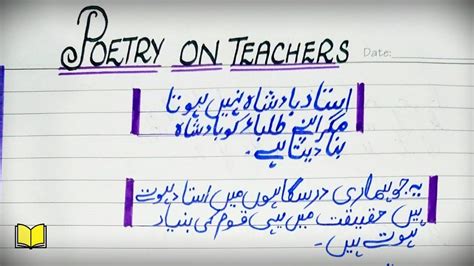 POETRY ON TEACHERS
Date:
استاد بادشاہ نہیں ہوتا
مگر اپنے طلباء کو بادشاہ
بنا دیتا ہے۔
یہ جو ہماری درسگاہوں میں استاد ہوتے
ہیں حقیقت میں یہی قوم کی بنیاد
ہوتے ہیں۔